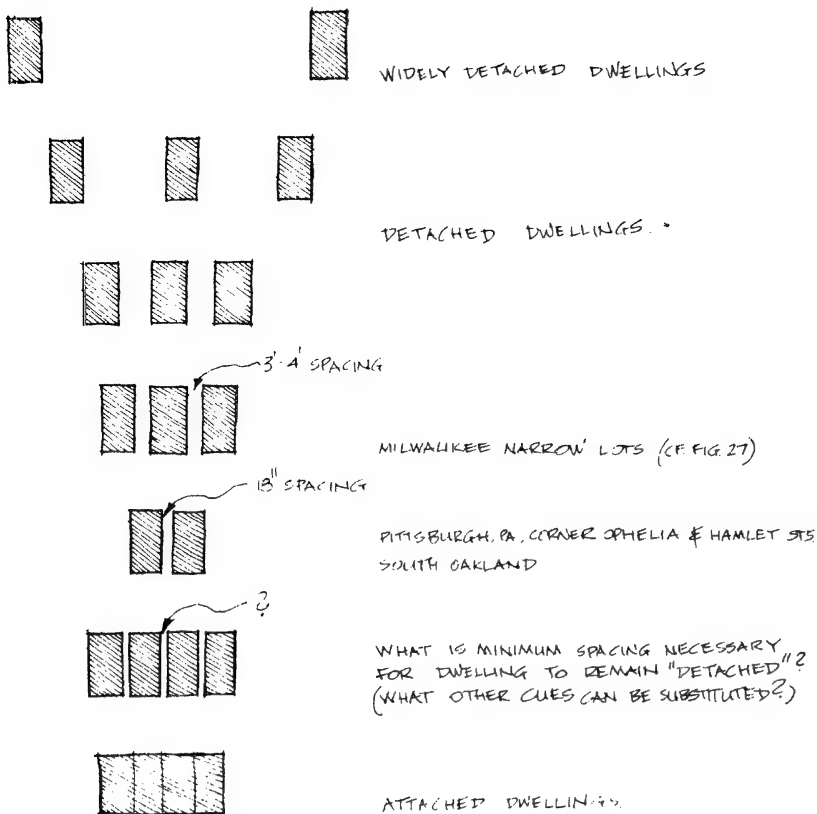 WIDELY DETACHED DWELLINGS
DETACHED DWELLINGS.
3'-4' SPACING
MILWAUKEE NARROW LOTS (CF. FIG. 27)
18" SPACING
PITTSBURGH, PA, CORNER OPHELIA & HAMLET STS
SOUTH OAKLAND
?
WHAT IS MINIMUM SPACING NECESSARY
FOR DWELLING TO REMAIN "DETACHED"?
(WHAT OTHER CUES CAN BE SUBSTITUTED?)
ATTACHED DWELLINGS